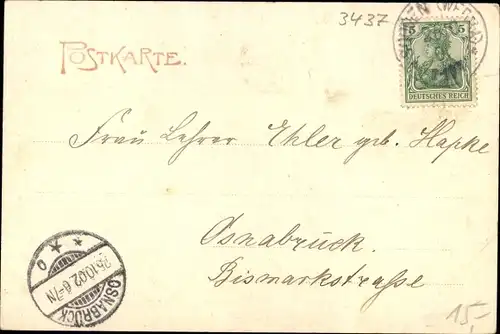 3437
POSTKARTE.
5 5
DEUTSCHES REICH
Frau Lehrer Ehler geb. Hapke
Osnabrück.
Bismarkstraße
OSNABRÜCK
26.10.02 6-7N
* * o
15,-